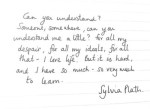 Can you understand?
Someone, somewhere, can you
understand me a little? for all my
despair, for all my ideals, for all
that - I love life. but it is hard,
and I have so much - so very much
to learn.
Sylvia Plath.